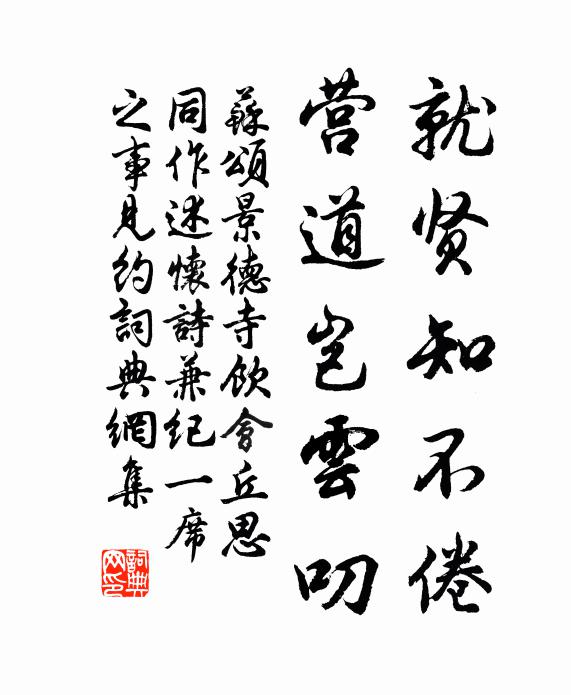 就贤知不倦
营道岂雲叨
蘇頌景德寺飲會丘思
同作述懷詩兼紀一席
之事見約詞典網集
詞典网印